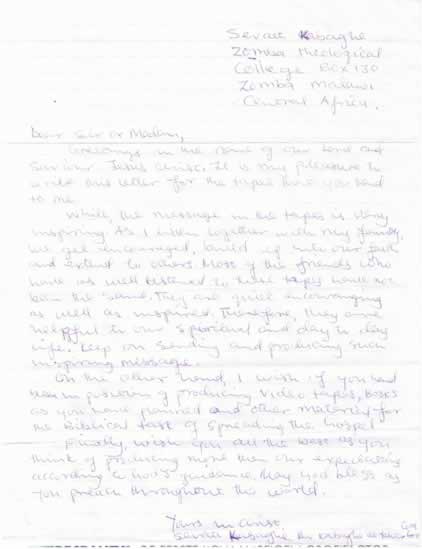 Zomba Theological
College Box 130
Zomba Malawi
Central Africa.
Dear Seir or Madam,
Greetings in the name of our Lord and
Saviour Jesus Christ. It is my pleasure to
write and letter for the tapes have you send
to me.
While, the message in the tapes is very
inspiring. As I listen together with my family,
we get encouraged, build up into our faith
and extent to others. Most of the friends who
have as well listened to these tapes have not
been the same. They are quiet encouraging
as well as inspired. Therefore, they are
helpful in our spiritual and day to day
life. Keep on sending and producing such
inspiring message.
On the other hand, I wish if you
in position of producing video tapes, books
as you have planned and other materials for
the biblical task of spreading the Gospel
Finally, wish you all the best as you
think of producing more than our expectations
according to God's guidance. May God bless as
you preach throughout the world.
Yours in Christ